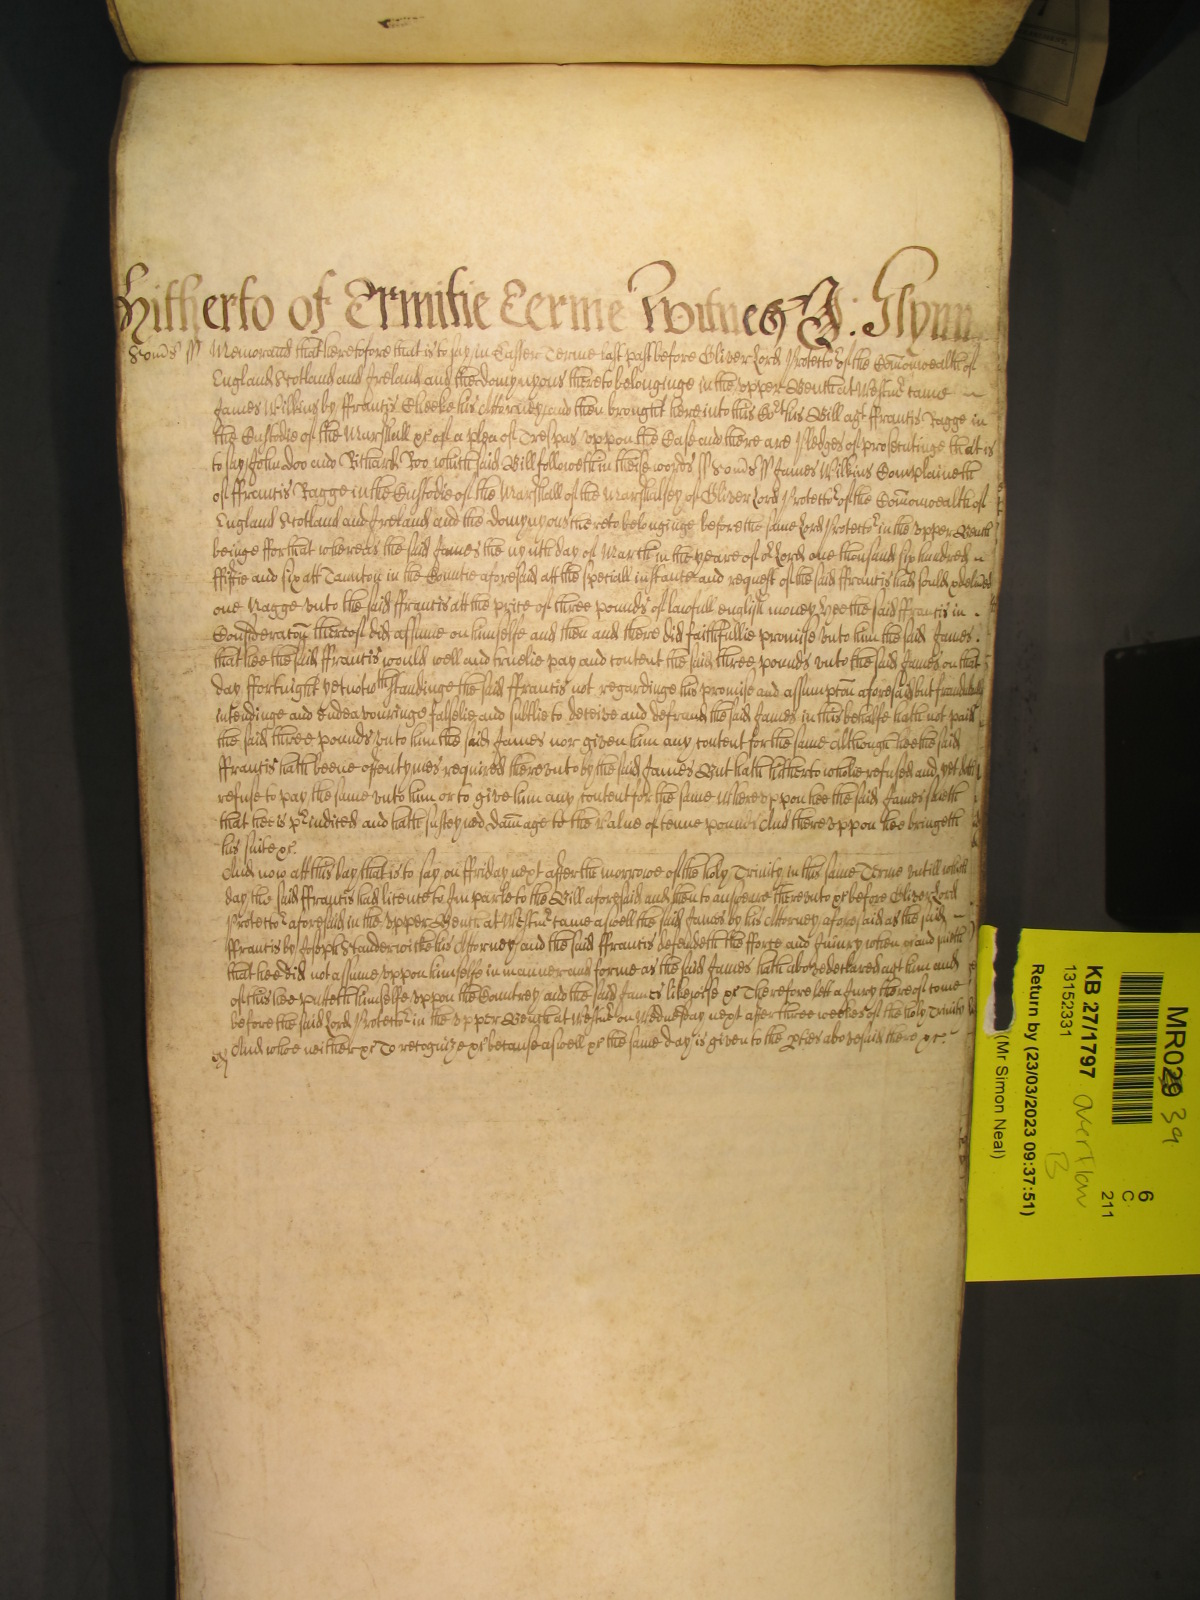 Hitherto of Trinitie Terme Witnes J: Glynn
Somst ss Memorand that heretofore that is to say in Easter Terme last past before Oliver Lord Protector of the Comonwealth of
England Scotland and Ireland and the domynyons thereto belonginge in the upper Bench at Westmr came
James Wilkins by ffrancis Cheeke his Attorney and then brought here into this Cort his Bill agt ffrancis Ragge in
the Custodie of the Marshall &c of a plea of Trespas uppon the Case and there are pledges of prosecutinge that is
to say John Doo and Richard Roo which said Bill followeth in theise words ss Somst ss James Wilkins Complaineth
of ffrancis Ragge in the Custodie of the Marshall of the Marshalsey of Oliver Lord Protector of the Comonwealth of
England Scotland and Ireland and the domynyons thereto belonginge before the same Lord Protector in the upper Bench
beinge ffor that whereas the said James the nynth day of March in the yeare of or Lord one thousand six hundred
ffiftie and six att Taunton in the Countie aforesaid att the speciall instance and request of the said ffrancis had sould &
one Nagge unto the said ffrancis att the price of three pounds of lawfull english money hee the said ffrancis in
Consideracon thereof did assume on himselfe and then and there did faithfullie promise unto him the said James
that hee the said ffrancis would well and truelie pay and content the said three pounds unto the said James on that
day ffortnight yet notwthstandinge the said ffrancis not regardinge his promise and assumpcon aforesaid but fraudulently
intendinge and endeavouringe falselie and subtlie to deceive and defraud the said James in this behalfe hath not paid
the said three pounds unto him the said James nor given him any content for the same Although hee the said
ffrancis hath beene oftentymes required thereunto by the said James But hath hitherto wholie refused and yet doth
refuse to pay the same unto him or to give him any content for the same Whereuppon hee the said James saieth
that hee is preiudiced and hath susteyned damage to the value of tenne pounds And thereuppon hee bringeth
his suite &c.
And now att this day that is to say on ffriday next after the morrowe of the holy Trinity in this same Terme untill which
day the said ffrancis had licence to Imparle to the Bill aforesaid and then to answeare thereunto &c before Oliver Lord
Protector aforesaid in the upper Bench at Westmr came aswell the said James by his Attorney aforesaid as the said
ffrancis by Joseph Standerwicke his Attorney and the said ffrancis defendeth the fforce and Iniury when &c and saieth
that hee did not assume uppon himselfe in manner and forme as the said James hath above declared agt him and
of this hee putteth himselfe uppon the Countrey and the said James likewise &c Therefore lett a Jury thereof come
before the said Lord Protector in the upper Bench at Westmr on Wednesday next after three weekes of the holy Trinity
And whoe neither &c To recognize &c because aswell &c the same day is given to the pties abovesaid there &c.
MR029 39
6
C
211
KB 27/1797
13152331
overflow
B
Return by (23/03/2023 09:37:51)
(Mr Simon Neal)